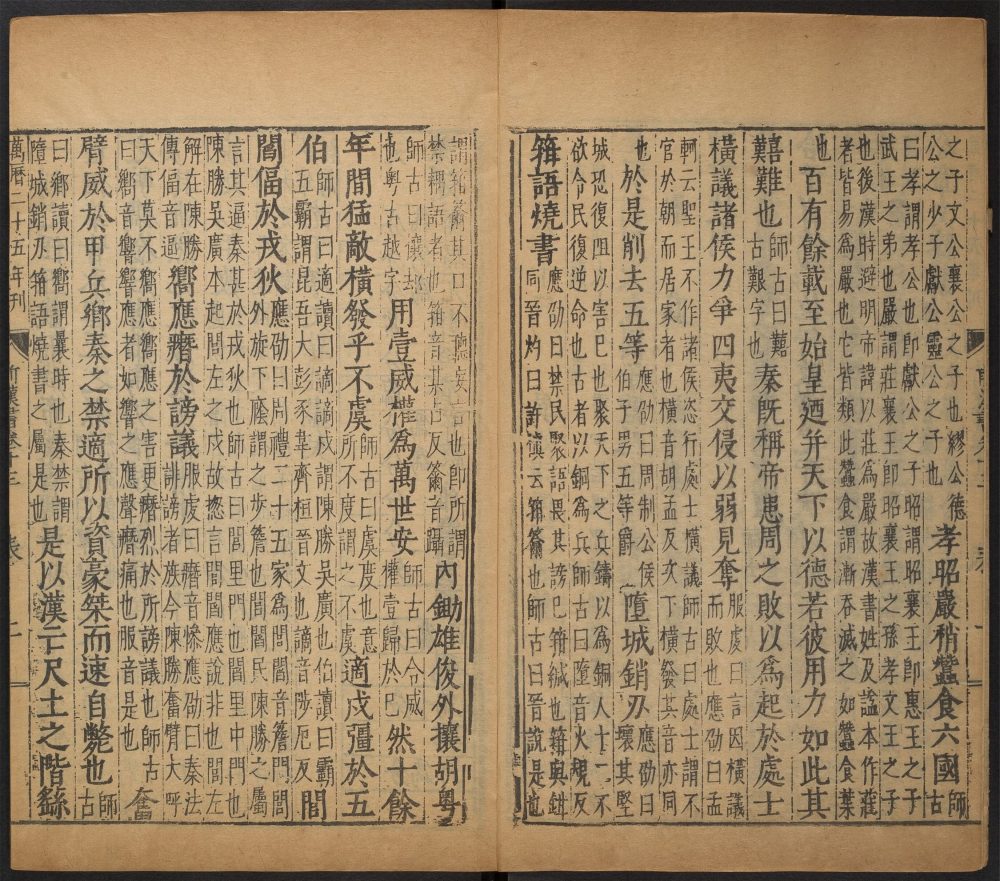 之子文公襄公之子也繆公德
公之少子獻公靈公之子也
孝昭嚴稍蠶食六國
師
古
曰孝謂孝公也即獻公之子昭謂昭襄王即惠王之子
武王之弟也嚴謂莊襄王即昭襄王之孫孝文王之子
也後漢時避明帝諱以莊為嚴故漢書姓及諡本作莊
者皆易為嚴也它皆類此蠶食謂漸吞滅之如蠶食葉
也
百有餘載至始皇迺并天下以德若彼用力如此其
囏難也
師古曰囏
古艱字也
秦既稱帝患周之敗以為起於處士
橫議諸侯力爭四夷交侵以弱見奪
服虔曰言因橫議
而敗也應劭曰孟
軻云聖王不作諸侯恣行處士橫議師古曰處士謂不
官於朝而居家者也橫音胡孟反次下橫發其音亦同
也
於是削去五等
應劭曰周制公侯
伯子男五等爵
墮城銷刃
應劭曰
壞其堅
城恐復阻以害已也聚天下之兵鑄以為銅人十二不
欲令民復逆命也古者以銅為兵師古曰墮音火規反
箝語燒書
應劭曰禁民聚語畏其謗已箝緘也箝與鉗
同晉灼曰許慎云箝籋也師古曰晉說是也
謂箝籋其口不聽妄言也即所謂
禁耦語者也箝音其占反籋音躡
內鋤雄俊外攘胡粵
師古曰攘却
也粵古越字
用壹威權為萬世安
師古曰令威
權壹歸於已
然十餘
年間猛敵橫發乎不虞
師古曰虞度也意
所不度謂之不虞
適戍彊於五
伯
師古曰適讀曰謫謫戍謂陳勝吳廣也伯讀曰霸
五霸謂昆吾大彭豕韋齊桓晉文也謫音陟厄反
閭
閻偪於戎狄
應劭曰周禮二十五家為閭閻音簷門閭
外旋下廕謂之步簷也閭閻民陳勝之屬
言其逼秦甚於戎狄也師古曰閭里門也閻里中門也
陳勝吳廣本起閭左之戍故揔言閭閻應說非也閭左
解在陳勝
傳偪音逼
嚮應𤺺於謗議
服虔曰𤺺音慘應劭曰秦法
誹謗者族今陳勝奮臂大呼
天下莫不嚮應之害更𤺺烈於所謗議也師古
曰嚮音響響應者如響之應聲𤺺痛也服音是也
奮
臂威於甲兵鄉秦之禁適所以資豪桀而速自斃也
師
古
曰鄉讀曰嚮謂曩時也秦禁謂
墮城銷刃箝語燒書之屬是也
是以漢亡尺土之階繇
萬曆二十五年刊
前漢書卷十三
表